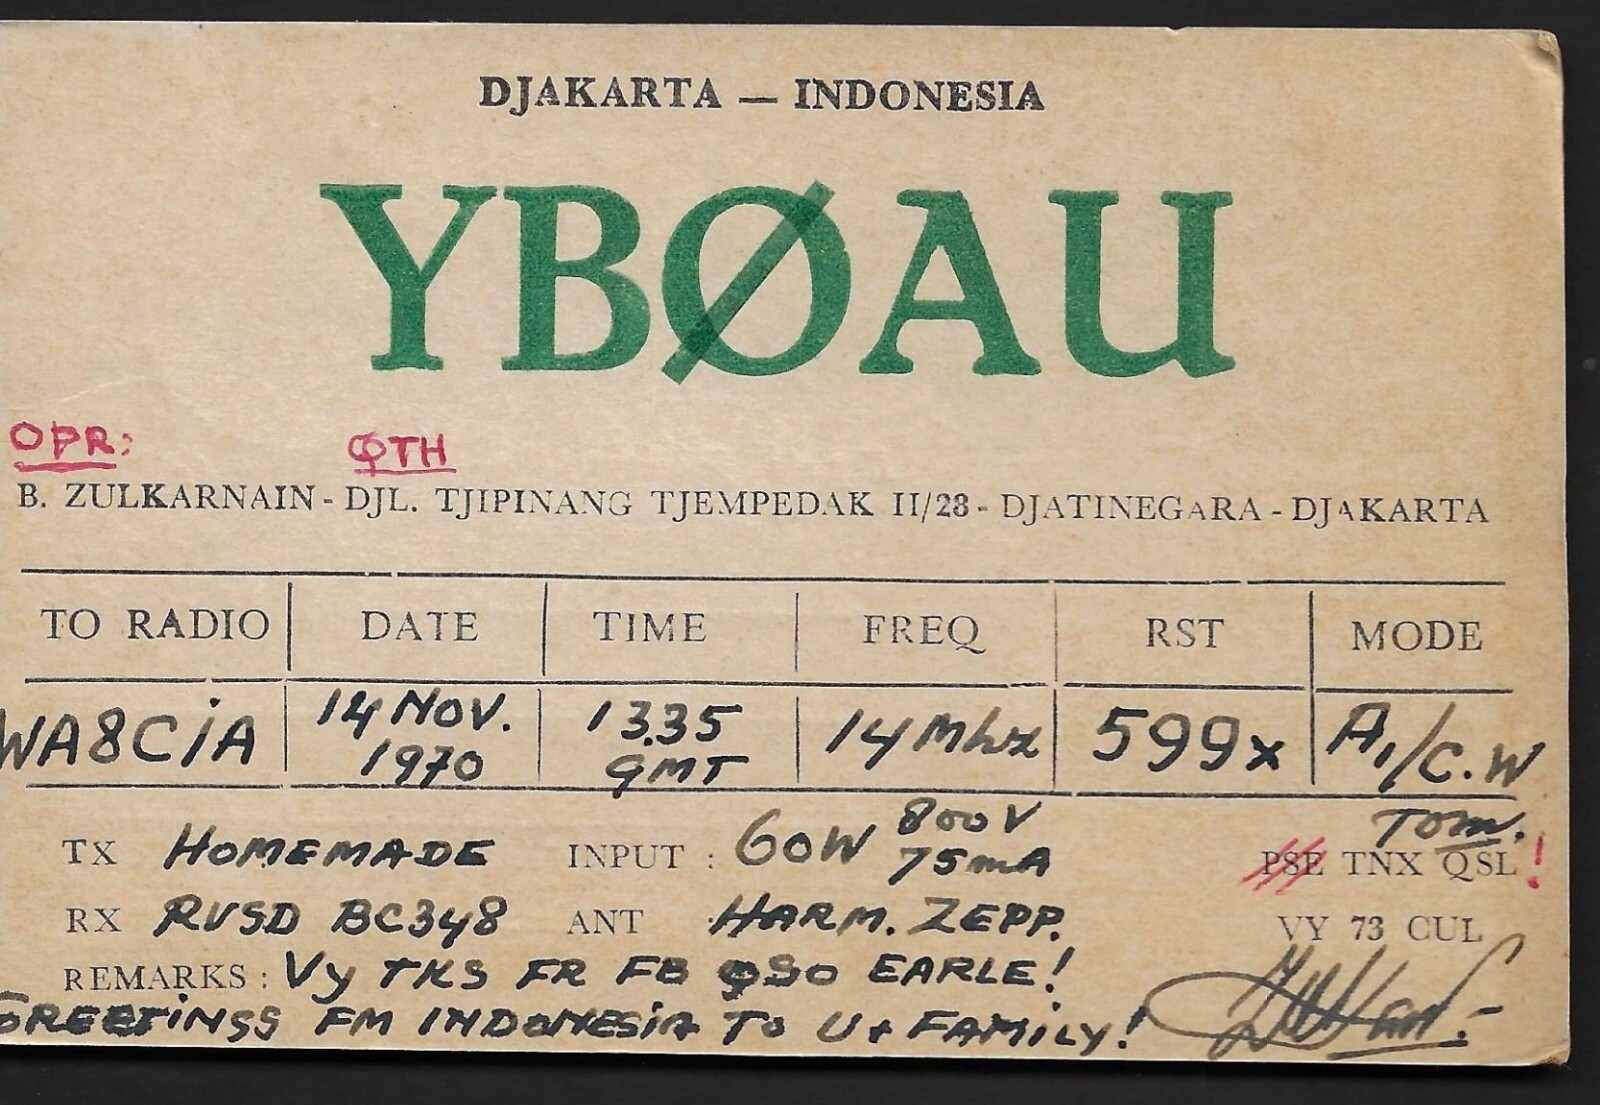 DJAKARTA — INDONESIA
YBØAU
OPR: QTH
B. ZULKARNAIN - DJL. TJIPINANG TJEMPEDAK II/28 - DJATINEGARA - DJAKARTA
TO RADIO DATE TIME FREQ RST MODE
WA8CiA 14 NOV. 1970 13.35 GMT 14 Mhz 599x A1/C.W
TX HOMEMADE INPUT : 60W 800V 75mA
Tom.
PSE TNX QSL !
RX RVSD BC348 ANT : HARM. ZEPP.
VY 73 CUL
REMARKS : Vy TKS FR FB QSO EARLE!
GREETiNGS FM INDONESiA To U + FAMiLy!